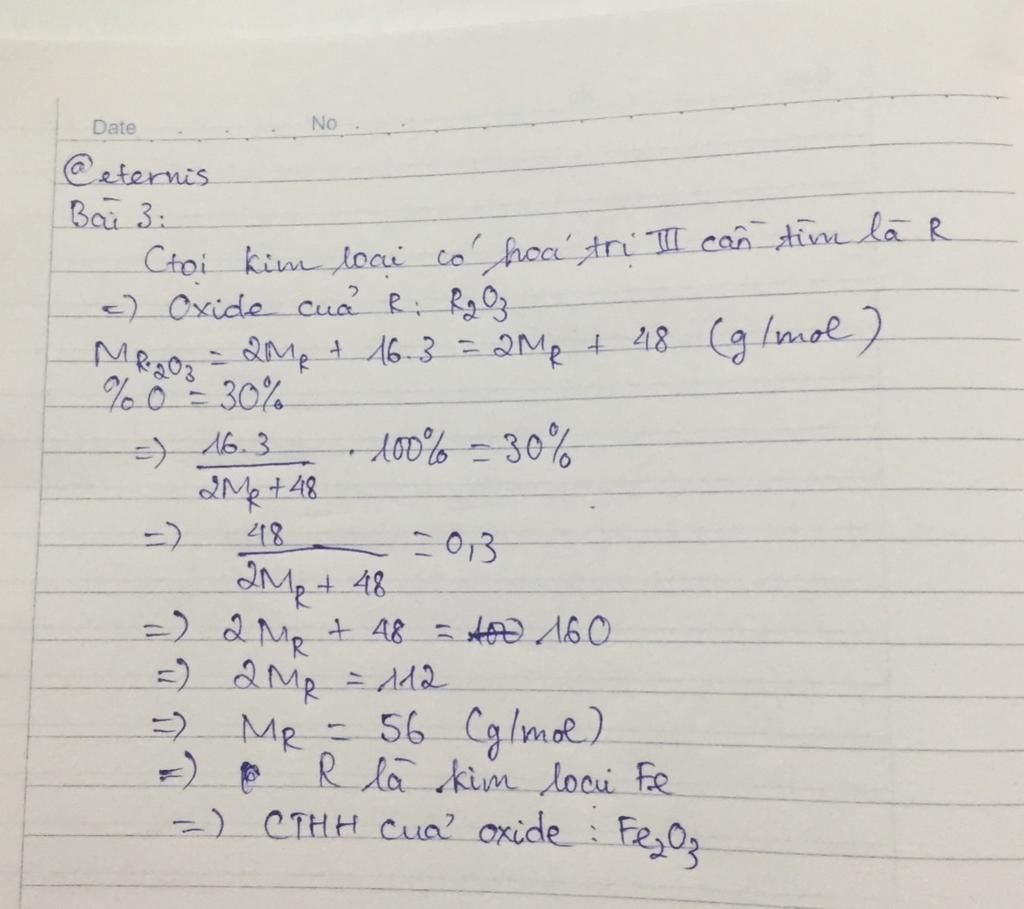 Date No
@eternis
Bài 3:
Gọi kim loại có hoá trị III cần tìm là R
=) Oxide của R: R₂O₃
M R₂O₃ = 2M_R + 16.3 = 2M_R + 48 (g/mol)
% O = 30%
=) 16.3 / 2M_R + 48 . 100% = 30%
=) 48 / 2M_R + 48 = 0,3
=) 2M_R + 48 = 160
=) 2M_R = 112
=) M_R = 56 (g/mol)
=) R là kim loại Fe
=) CTHH của oxide : Fe₂O₃